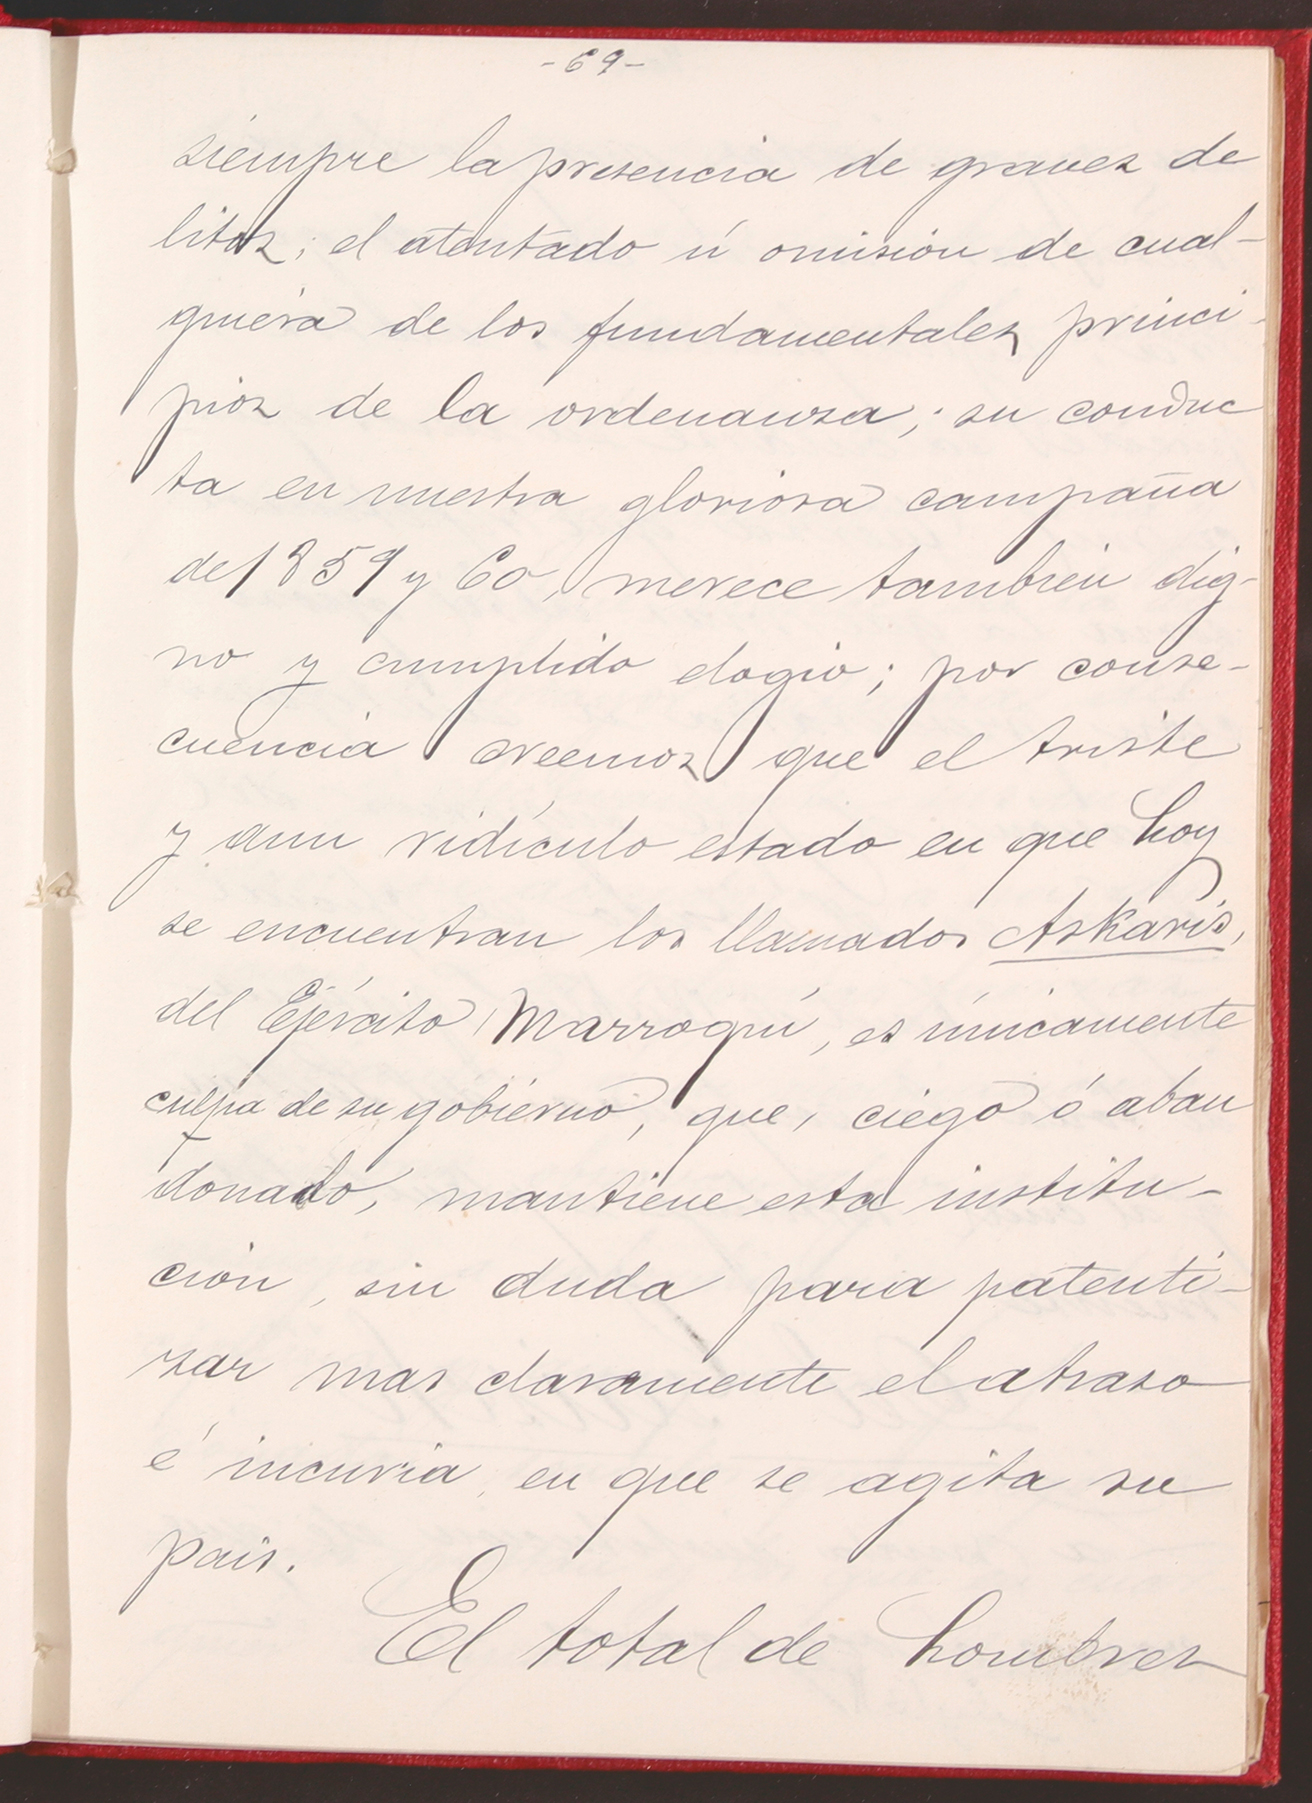 -69-
siempre la presencia de graves de
litos; el atentado ú omisión de cual-
quiera de los fundamentales princi-
pios de la ordenanza; su conduc
ta en nuestra gloriosa campaña
de 1859 y 60, merece tambien dig-
no y cumplido elogio; por conse-
cuencia creemos que el triste
y aun ridículo estado en que hoy
se encuentran los llamados Askaris,
del Ejército Marroquí, es únicamente
culpa de su gobierno, que, ciego ó aban
donado, mantiene esta institu-
ción, sin duda para patenti-
zar mas claramente el atraso
é incuria, en que se agita su
pais.
El total de hombres